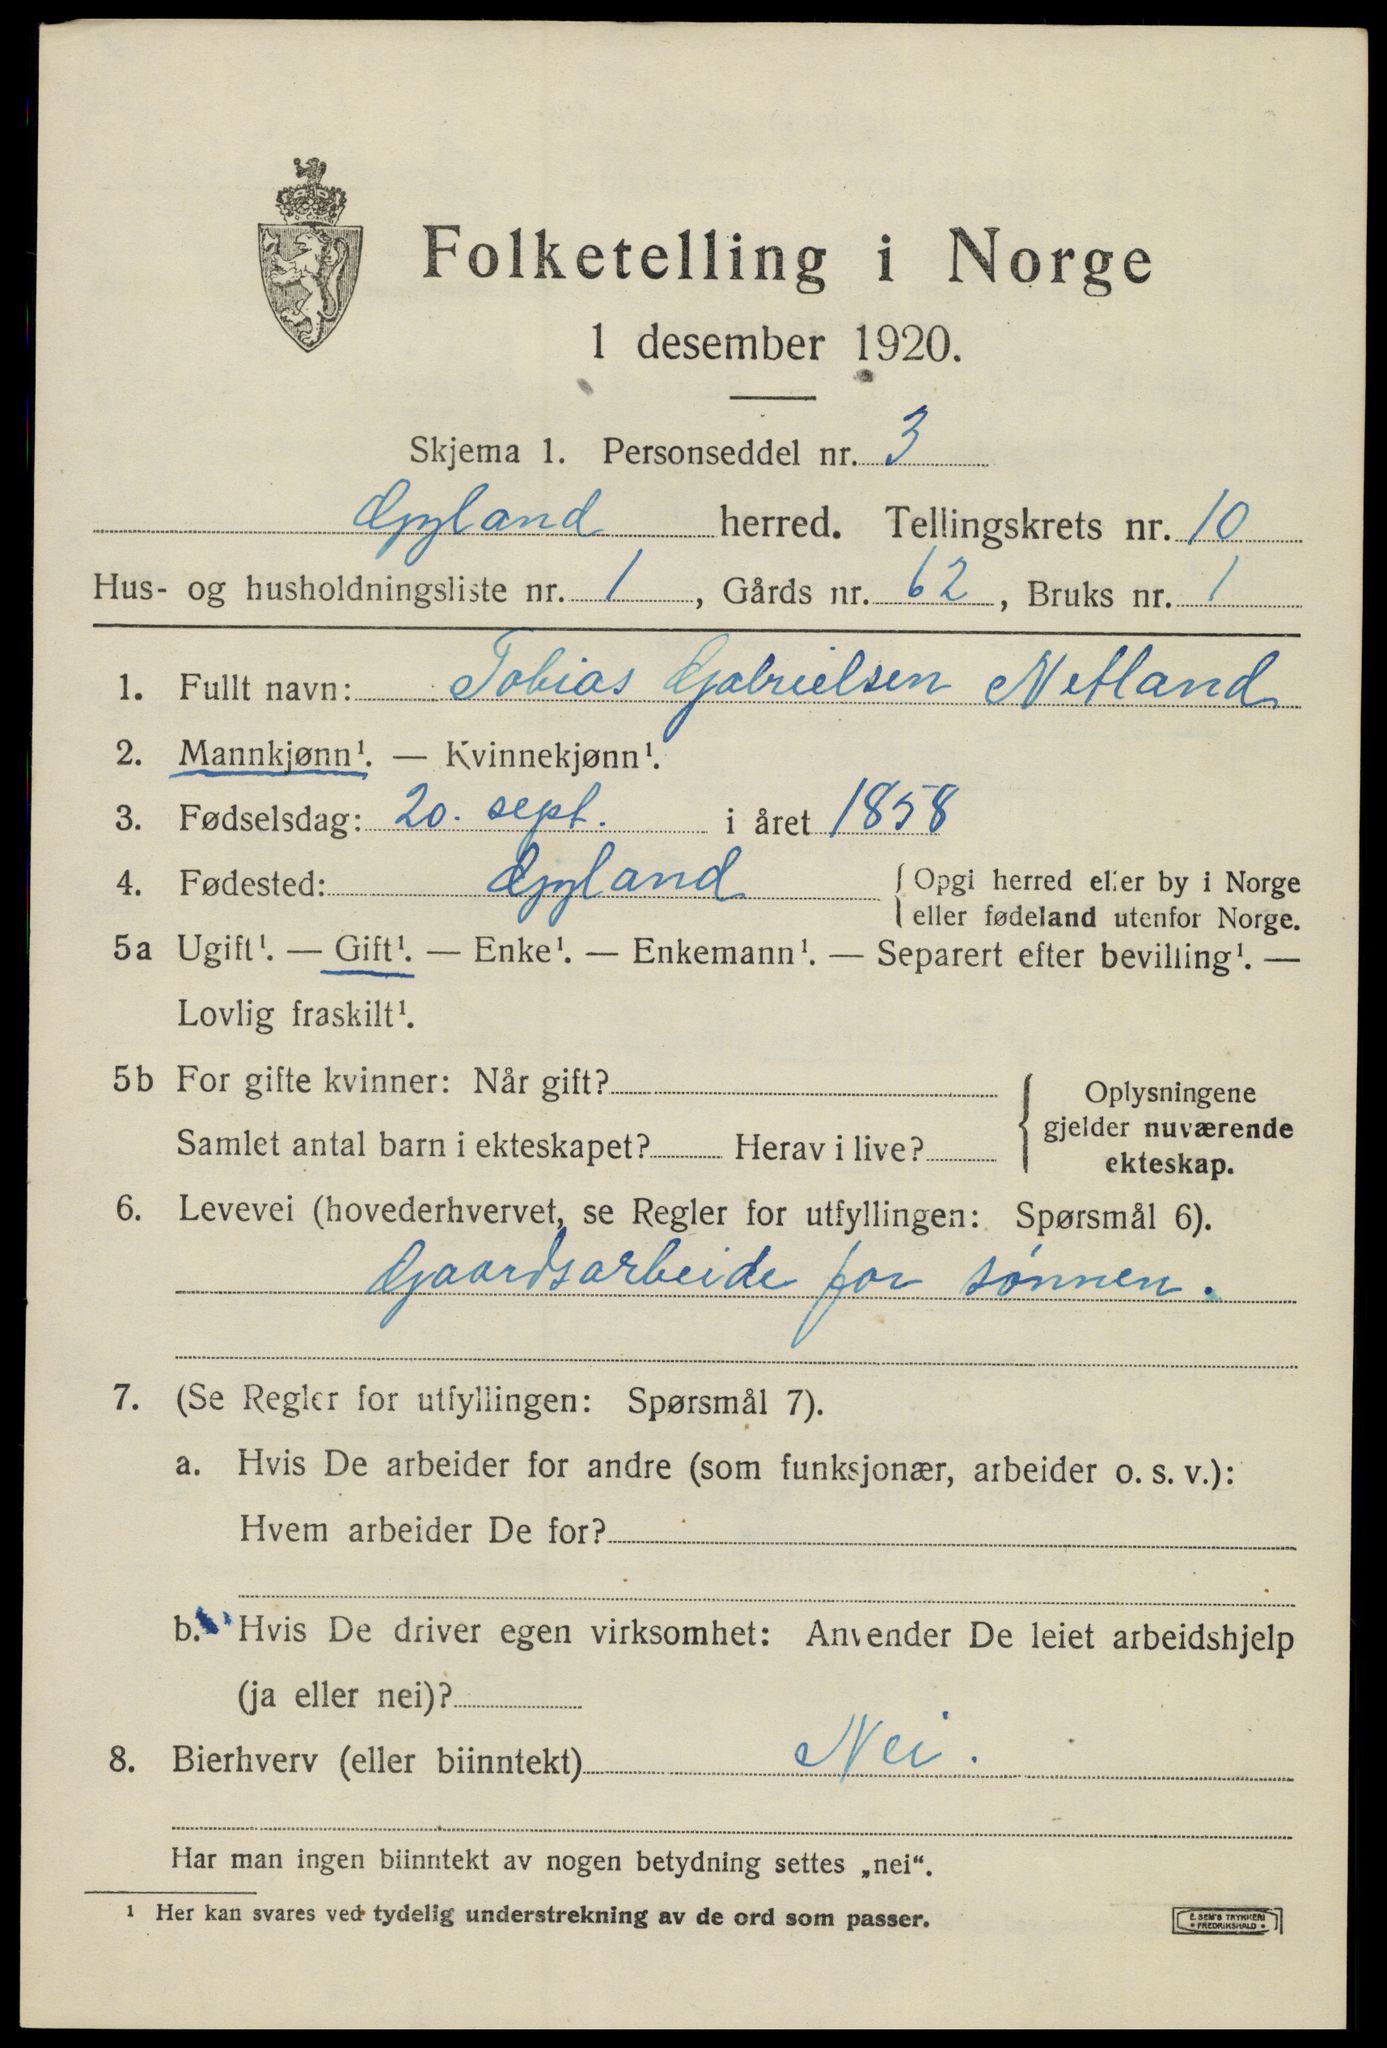 Folketelling i Norge
1 desember 1920.
Skjema 1. Personseddel nr. 3
Gyland herred. Tellingskrets nr. 10
Hus- og husholdningsliste nr. 1, Gårds nr. 62, Bruks nr. 1
1. Fullt navn: Tobias Gabrielsen Netland
2. Mannkjønn¹. — Kvinnekjønn¹.
3. Fødselsdag: 20. sept. i året 1858
4. Fødested: Gyland { Opgi herred eller by i Norge
eller fødeland utenfor Norge.
5a Ugift¹. — Gift¹. — Enke¹. — Enkemann¹. — Separert efter bevilling¹. —
Lovlig fraskilt¹.
5b For gifte kvinner: Når gift? { Oplysningene
gjelder nuværende
Samlet antal barn i ekteskapet? Herav i live?
ekteskap.
6. Levevei (hovederhvervet, se Regler for utfyllingen: Spørsmål 6).
Gaardsarbeide for sønnen.
7. (Se Regler for utfyllingen: Spørsmål 7).
a. Hvis De arbeider for andre (som funksjonær, arbeider o. s. v.):
Hvem arbeider De for?
b. Hvis De driver egen virksomhet: Anvender De leiet arbeidshjelp
(ja eller nei)?
8. Bierhverv (eller biinntekt) Nei.
Har man ingen biinntekt av nogen betydning settes „nei“.
¹ Her kan svares ved tydelig understrekning av de ord som passer.
E. SEM'S TRYKKERI
• FREDRIKSHALD •